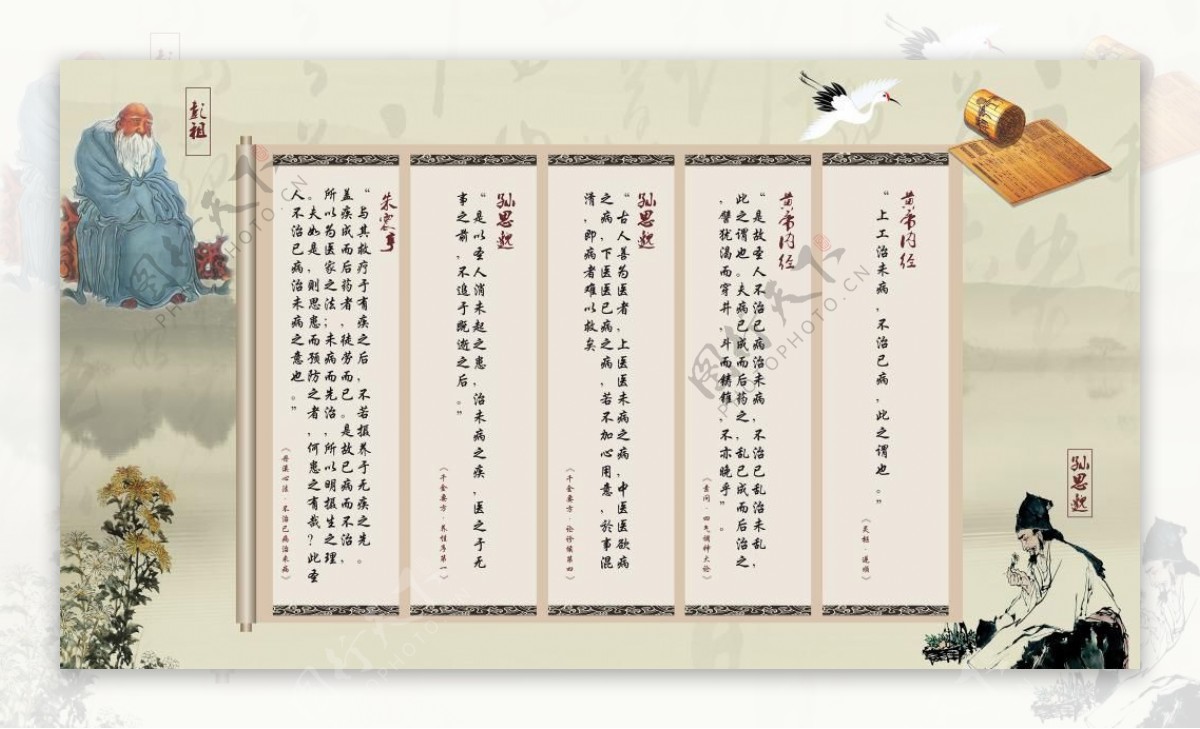 彭祖
黄帝内经
“上工治未病,不治已病,此之谓也。”
《灵枢·逆顺》
黄帝内经
“是故圣人不治已病治未病,不治已乱治未乱,
此之谓也。夫病已成而后药之,乱已成而后治之
,譬犹渴而穿井,斗而铸锥,不亦晚乎”。
《素问·四气调神大论》
孙思邈
“古人善为医者,上医医未病之病,中医医欲病
之病,下医医已病之病,若不加心用意,於事混
淆,即病者难以救矣
《千金要方·论诊候第四》
孙思邈
“是以圣人消未起之患,治未病之疾,医之于无
事之前,不追于既逝之后。”
《千金要方·养性序第一》
朱震亨
“与其救疗于有疾之后,不若摄养于无疾之先。
盖疾成而后药者,徒劳而已。是故已病而不治,
所以为医家之法;未病而先治,所以明摄生之理
。夫如是,则思患而预防之者,何患之有哉?此圣
人不治已病治未病之意也。”
《丹溪心法·不治已病治未病》
孙思邈
图行天下
PHOTOPHOTO.CN